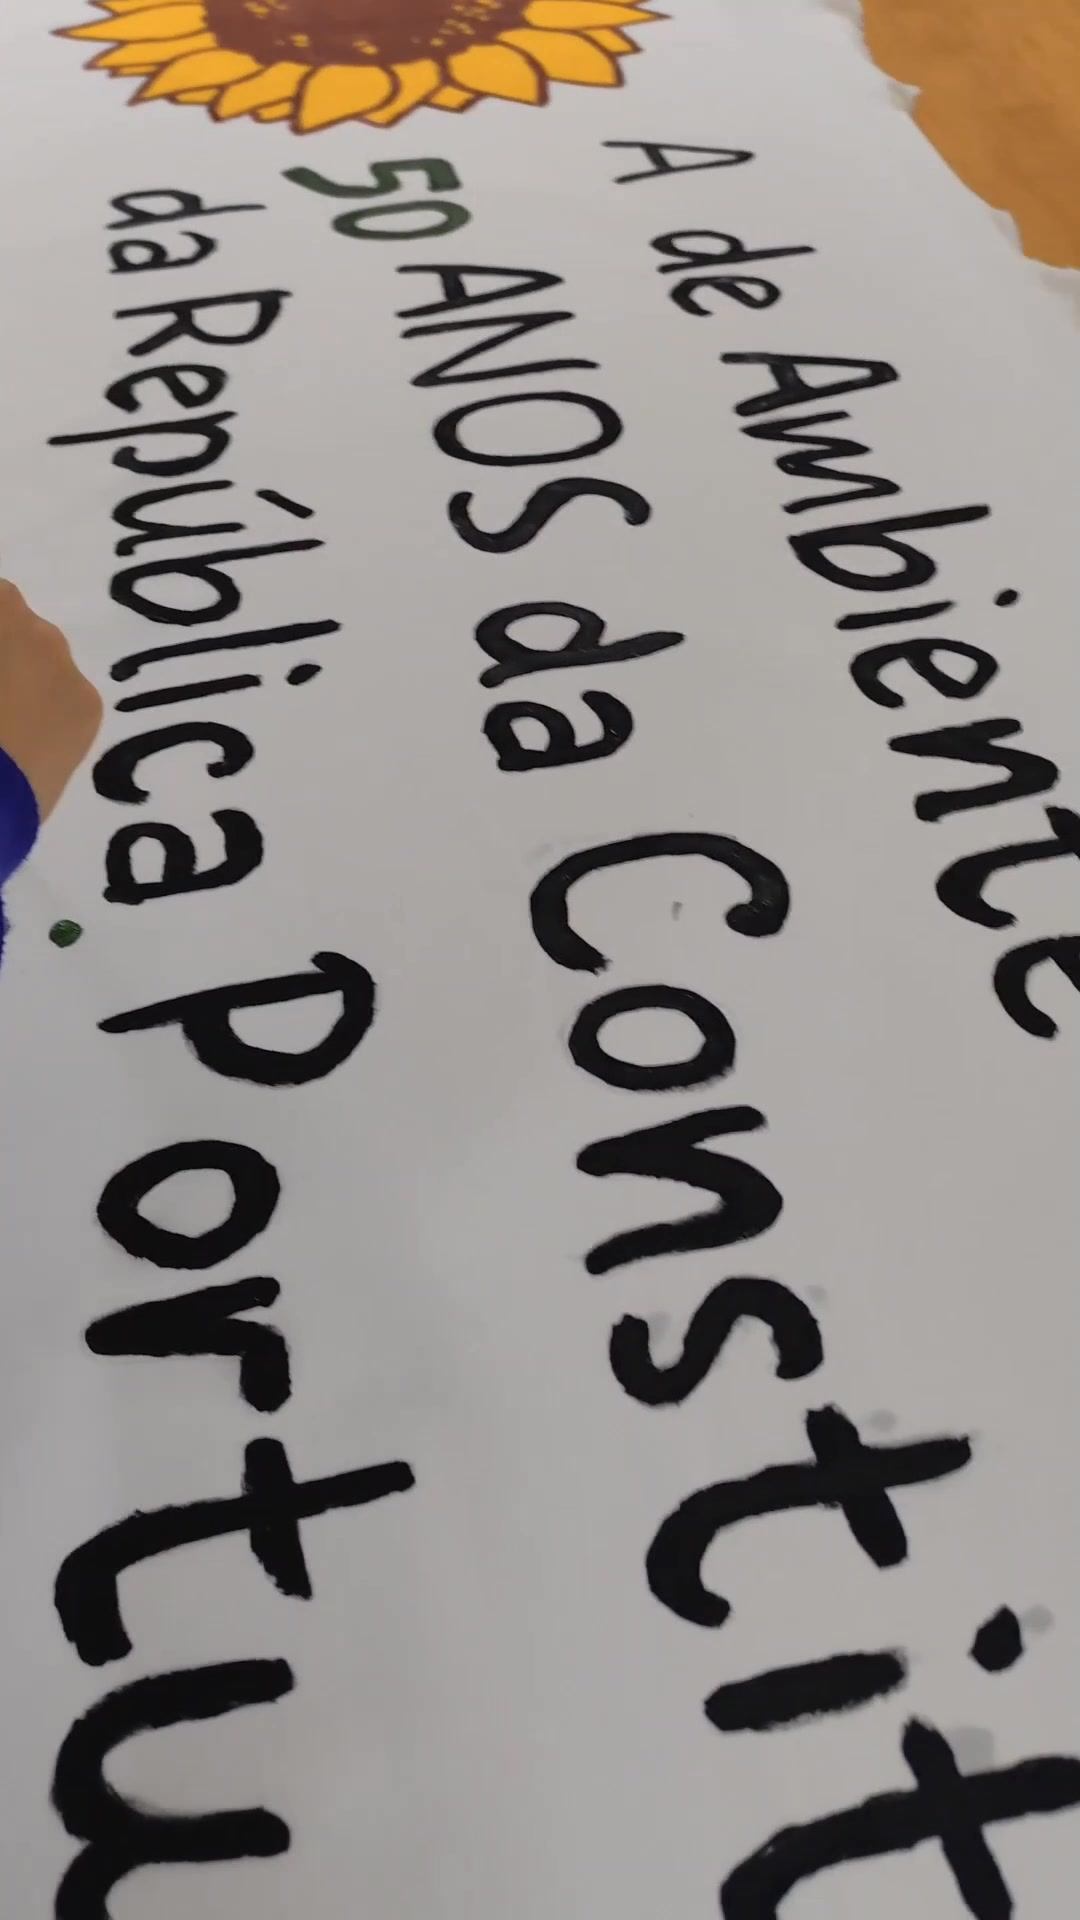 A de Ambiente
50 ANOS da Constit
da República Portu